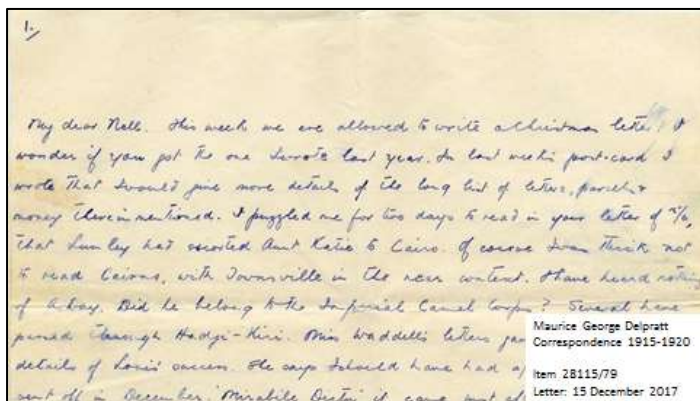 1.
My dear Nell. This week we are allowed to write a Christmas letter. I
wonder if you got the one I wrote last year. In last week's post-card I
wrote that I would give more details of the long list of letters, parcels &
money therein mentioned. It puzzled me for two days to read in your letter of
that Lumley had escorted Aunt Katie to Cairo. Of course I was thick not
to read Cairns, with Townsville in the near context. I have heard nothing
of Did he belong to the Imperial Camel Corps? Several have
passed through Hadji-Kiri. Miss Waddell's letters
details of success. He says I should have had
sent off in December. 'Mirabile Dictu' it came
Maurice George Delpratt
Correspondence 1915-1920
Item 28115/79
Letter: 15 December 2017